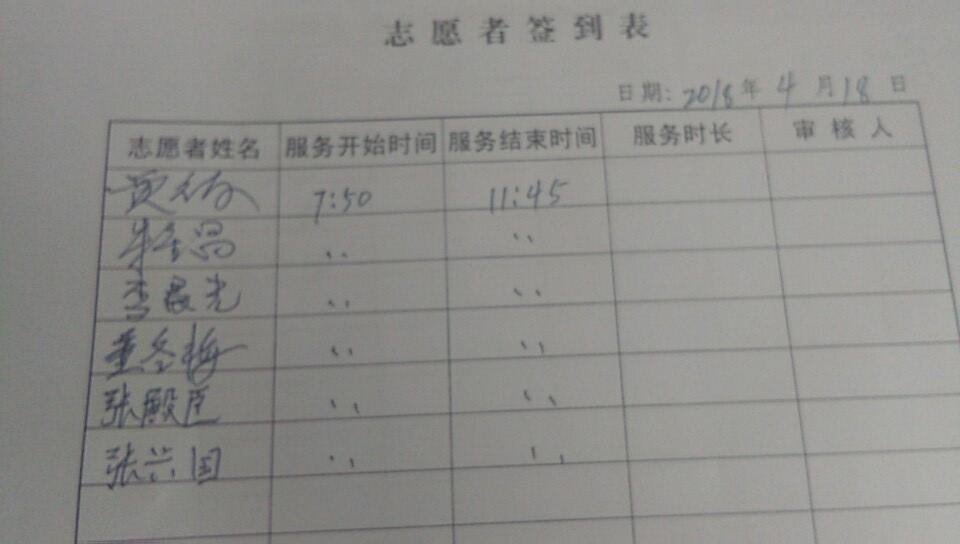 志愿者签到表
日期: 2018年 4 月 18 日
志愿者姓名 服务开始时间 服务结束时间 服务时长 审核人
7:50 11:45
〃 〃
李晨光 〃 〃
董冬梅 〃 〃
张殿臣 〃 〃
张兴国 〃 〃